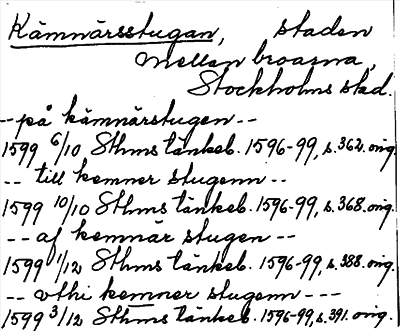 Kämnärsstugan, staden
mellan broarna,
Stockholms stad.
-- på kämnärstugen --
1599 6/10 Sthms tänkeb. 1596-99, s. 362. orig.
-- till kemner stugenn --
1599 10/10 Sthms tänkeb. 1596-99, s. 368. orig.
-- af kemnär stugen --
1599 1/12 Sthms tänkeb. 1596-99, s. 388. orig.
-- vthi kemner stugenn ---
1599 3/12 Sthms tänkeb. 1596-99, s. 391. orig.